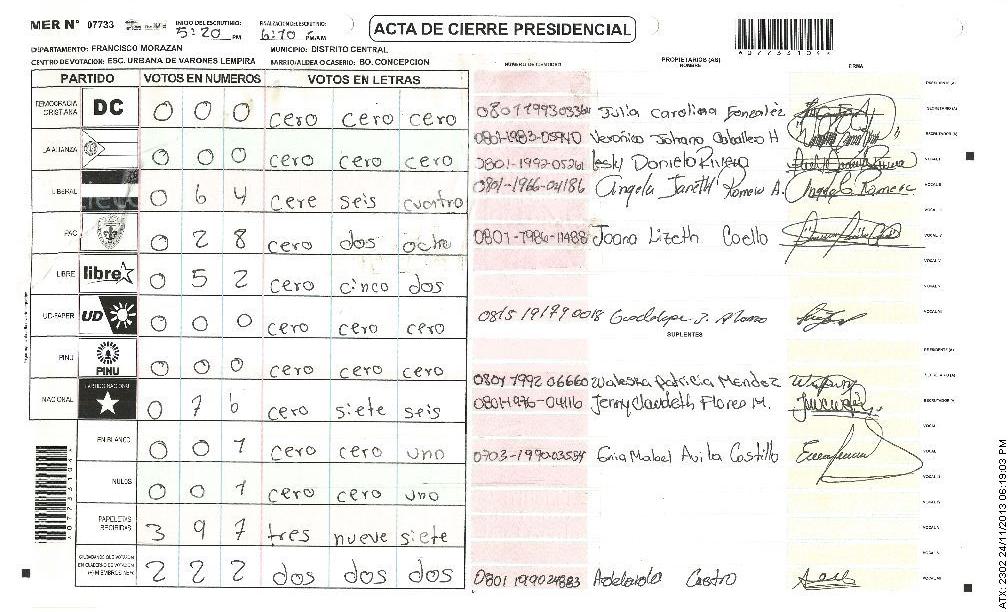 MER N° 07733
INICIO DEL ESCRUTINIO: 5:20 PM
FINALIZACION DEL ESCRUTINIO: 6:10 PM/AM
ACTA DE CIERRE PRESIDENCIAL
DEPARTAMENTO: FRANCISCO MORAZAN
MUNICIPIO: DISTRITO CENTRAL
CENTRO DE VOTACION: ESC. URBANA DE VARONES LEMPIRA
BARRIO/ALDEA O CASERIO: BO. CONCEPCION
PARTIDO VOTOS EN NUMEROS VOTOS EN LETRAS
DEMOCRACIA CRISTIANA DC 0 0 0 cero cero cero
LA ALIANZA 0 0 0 cero cero cero
LIBERAL 0 6 4 cere seis cuatro
PAC 0 2 8 cero dos ocho
LIBRE libre 0 5 2 cero cinco dos
UD-FAPER UD 0 0 0 cero cero cero
PINU PINU 0 0 0 cero cero cero
NACIONAL PARTIDO NACIONAL 0 7 6 cero siete seis
EN BLANCO 0 0 1 cero cero uno
NULOS 0 0 1 cero cero uno
PAPELETAS RECIBIDAS 3 9 7 tres nueve siete
CIUDADANOS QUE VOTARON EN CUADERNO DE VOTACION (+) MIEMBROS MER 2 2 2 dos dos dos
NUMERO DE IDENTIDAD PROPIETARIOS (AS) NOMBRE FIRMA
PRESIDENTE (A)
Julia Carolina Gonzalez SECRETARIO (A)
0801-1983-05940 Veronica Johana Caballero H ESCRUTADOR (A)
0801-1992-05261 Lesly Daniela Rivera VOCAL I
0801-1966-04186 Angela Janeth Romero A. VOCAL II
0801-1986-11488 Joana Lizeth Coello VOCAL IV
VOCAL V
0815 1979 0018 Guadalupe J. Alonzo VOCAL VI
SUPLENTES
PRESIDENTE (A)
0801 1992 06660 Waleska Patricia Mendez SECRETARIO (A)
0801-1976-04116 Jenny Claudeth Flores M. ESCRUTADOR (A)
VOCAL I
Mabel Avila Castillo VOCAL II
VOCAL III
VOCAL IV
VOCAL V
0801 1990 24883 Adelaida Castro VOCAL VI
ATX-2302 24/11/2013 06:19:03 PM